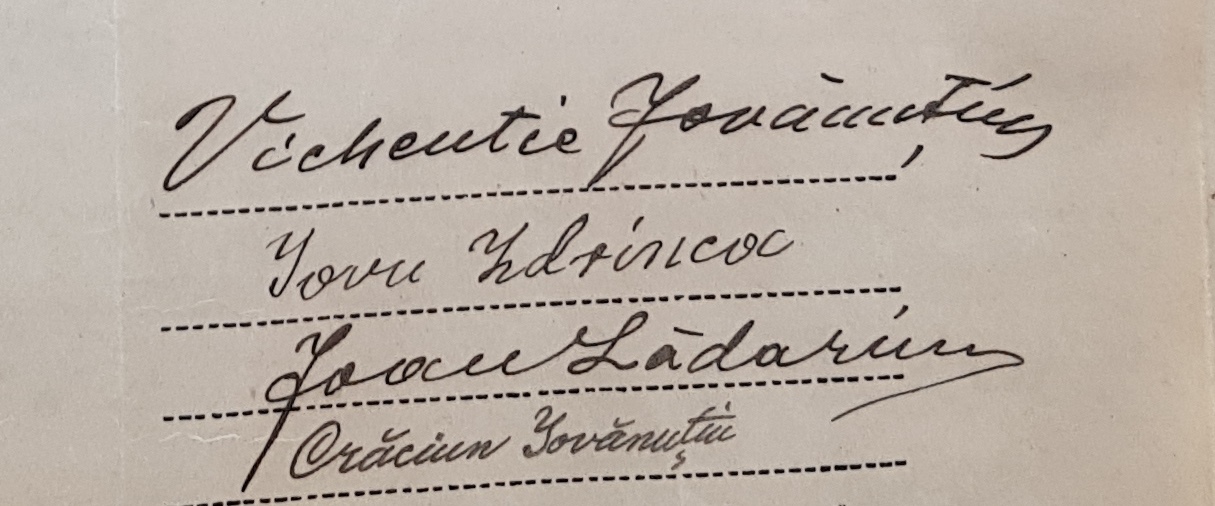 Vichentie Iovănuțiu
Iovu Zdrincoc
Ioan Lădariu
Crăciun Iovănuțiu